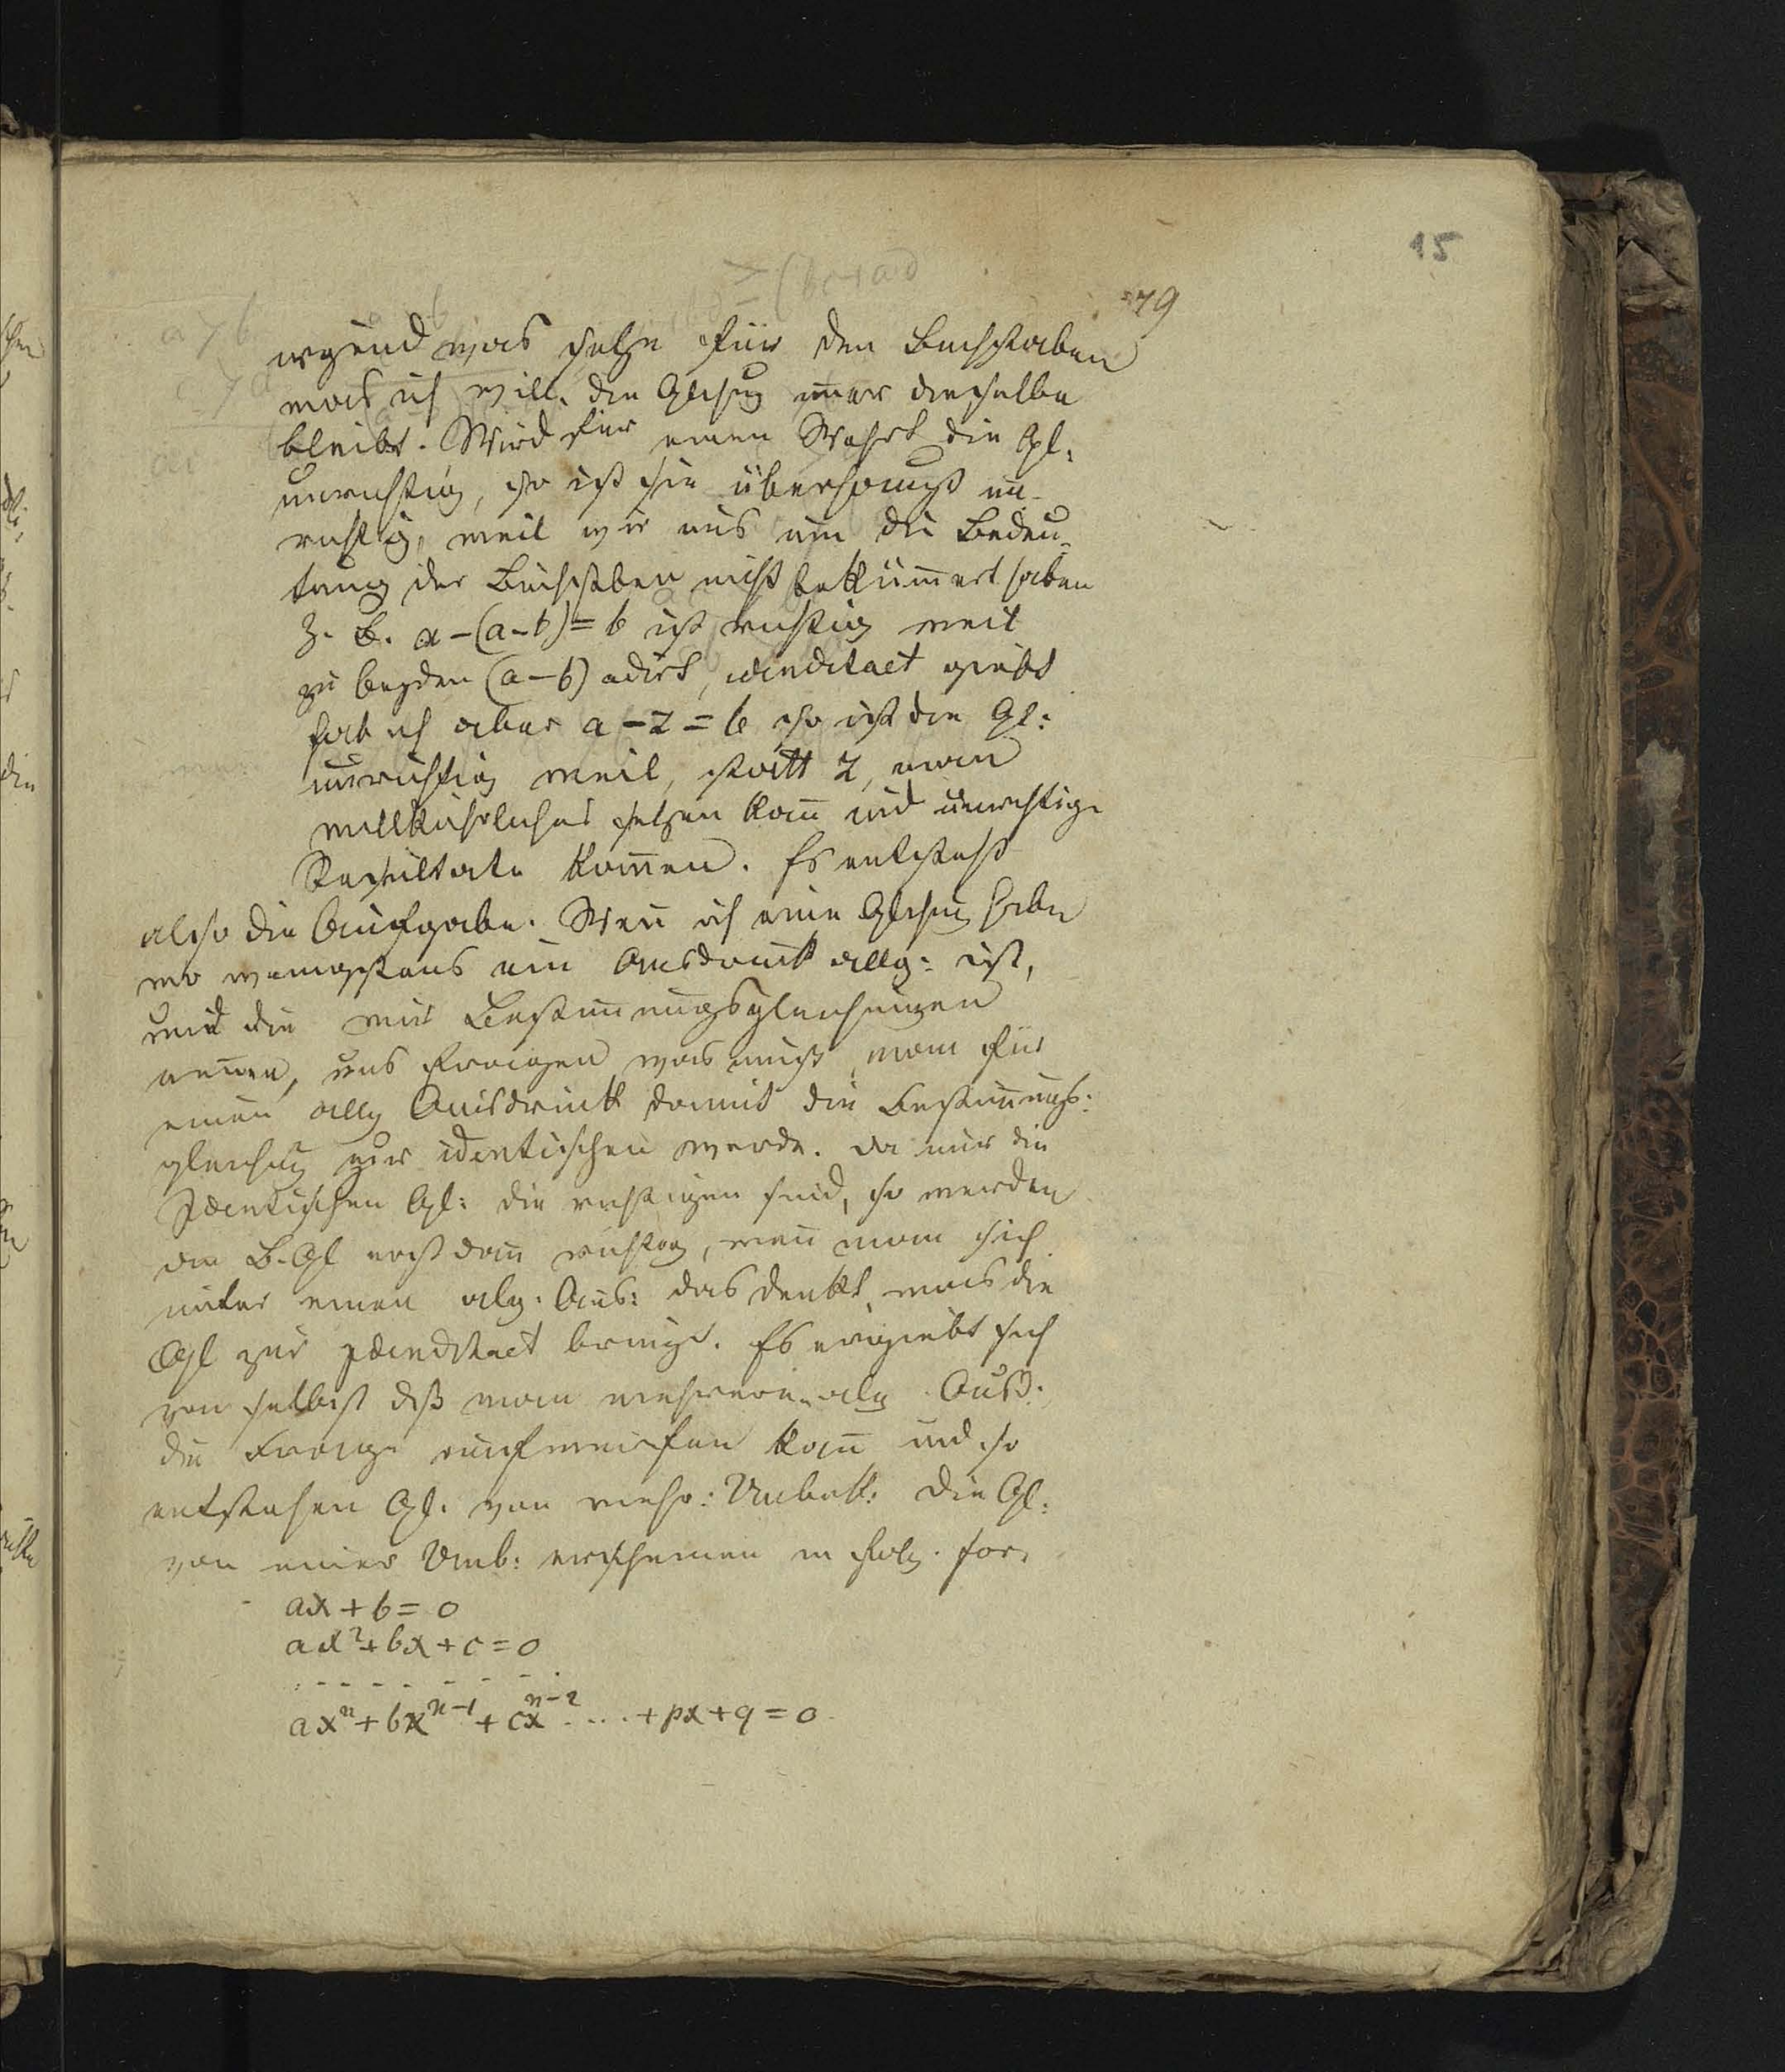 15
79
irgend was setze für den Buchstaben
was ich will, die Glchug imer dieselbe
bleibt. Wird für einen Wehrt die Gl:
unrichtig, so ist sie überhaupt un-
richtig, weil wir uns um die Bedeu-
tung der Buchstben nicht bekkümert haben
Z. B. a-(a-b)=b ist richtig weil
zu beyden (a-b) adirt, idenditaet giebt
hab ich aber a-z=b so ist die Gl:
unrichtig weil, statt z, man
willkührliches setzen kan und unrichtige
Resultate komen. Es entsteht
also die Aufgabe. Wen ich eine Glchug habe
wo wenigstens ein Ausdrukk allg: ist,
und die wir Bestimungsgleichungen
nenen, uns fragen was muß man für
einen allg Ausdrukk damit die Bestimungs:
gleichug zur identischen werde. Da nur die
Identischen Gl: die richtigen sind, so werden
die B. Gl erst dan richtig, wen man sich
unter einen alg. Aus: das denkt was die
Gl zur Idenditaet bringt. Es ergiebt sich
von selbst dß man mehrere alg. Auß:
die Frage aufwerfen kan und so
entstehen Gl. von mehr: Unbek: Die Gl:
von einer Unb: erscheinen in folg. for.
ax+b=0
ax²+bx+c=0
. - - - - - - - .
axⁿ+bxⁿ⁻¹+cxⁿ⁻² .... +px+q=0.